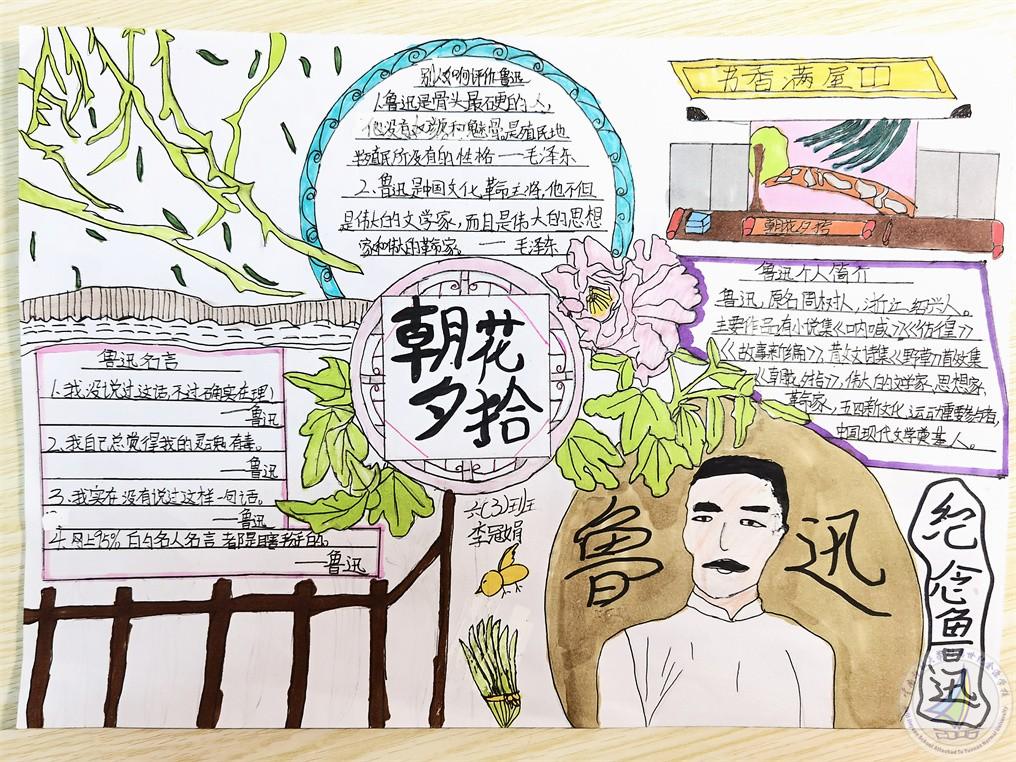 别人如何评价鲁迅
1.鲁迅是骨头最硬的人,
他没有奴颜和魅骨,是殖民地
半殖民所没有的性格——毛泽东
2、鲁迅是中国文化革命主将,他不但
是伟大的文学家,而且是伟大的思想
家和伟大的革命家。——毛泽东
书香满屋
朝花夕拾
鲁迅个人简介
鲁迅,原名周树人,浙江绍兴人。
主要作品有小说集《呐喊》《彷徨》
《故事新编》,散文诗集《野草》首散文集
《朝花夕拾》,伟大的文学家、思想家、
革命家,五四新文化运动重要参与者,
中国现代文学奠基人。
朝花
夕拾
鲁迅名言
1.我没说过这话,不过确实在理!
——鲁迅
2.我自己总觉得我的灵魂有毒。
——鲁迅
3.我实在没有说过这样一句话。
——鲁迅
4.网上95%的名人名言都是瞎掰的。
——鲁迅
六(3)班
李冠娟
鲁迅
纪念鲁迅